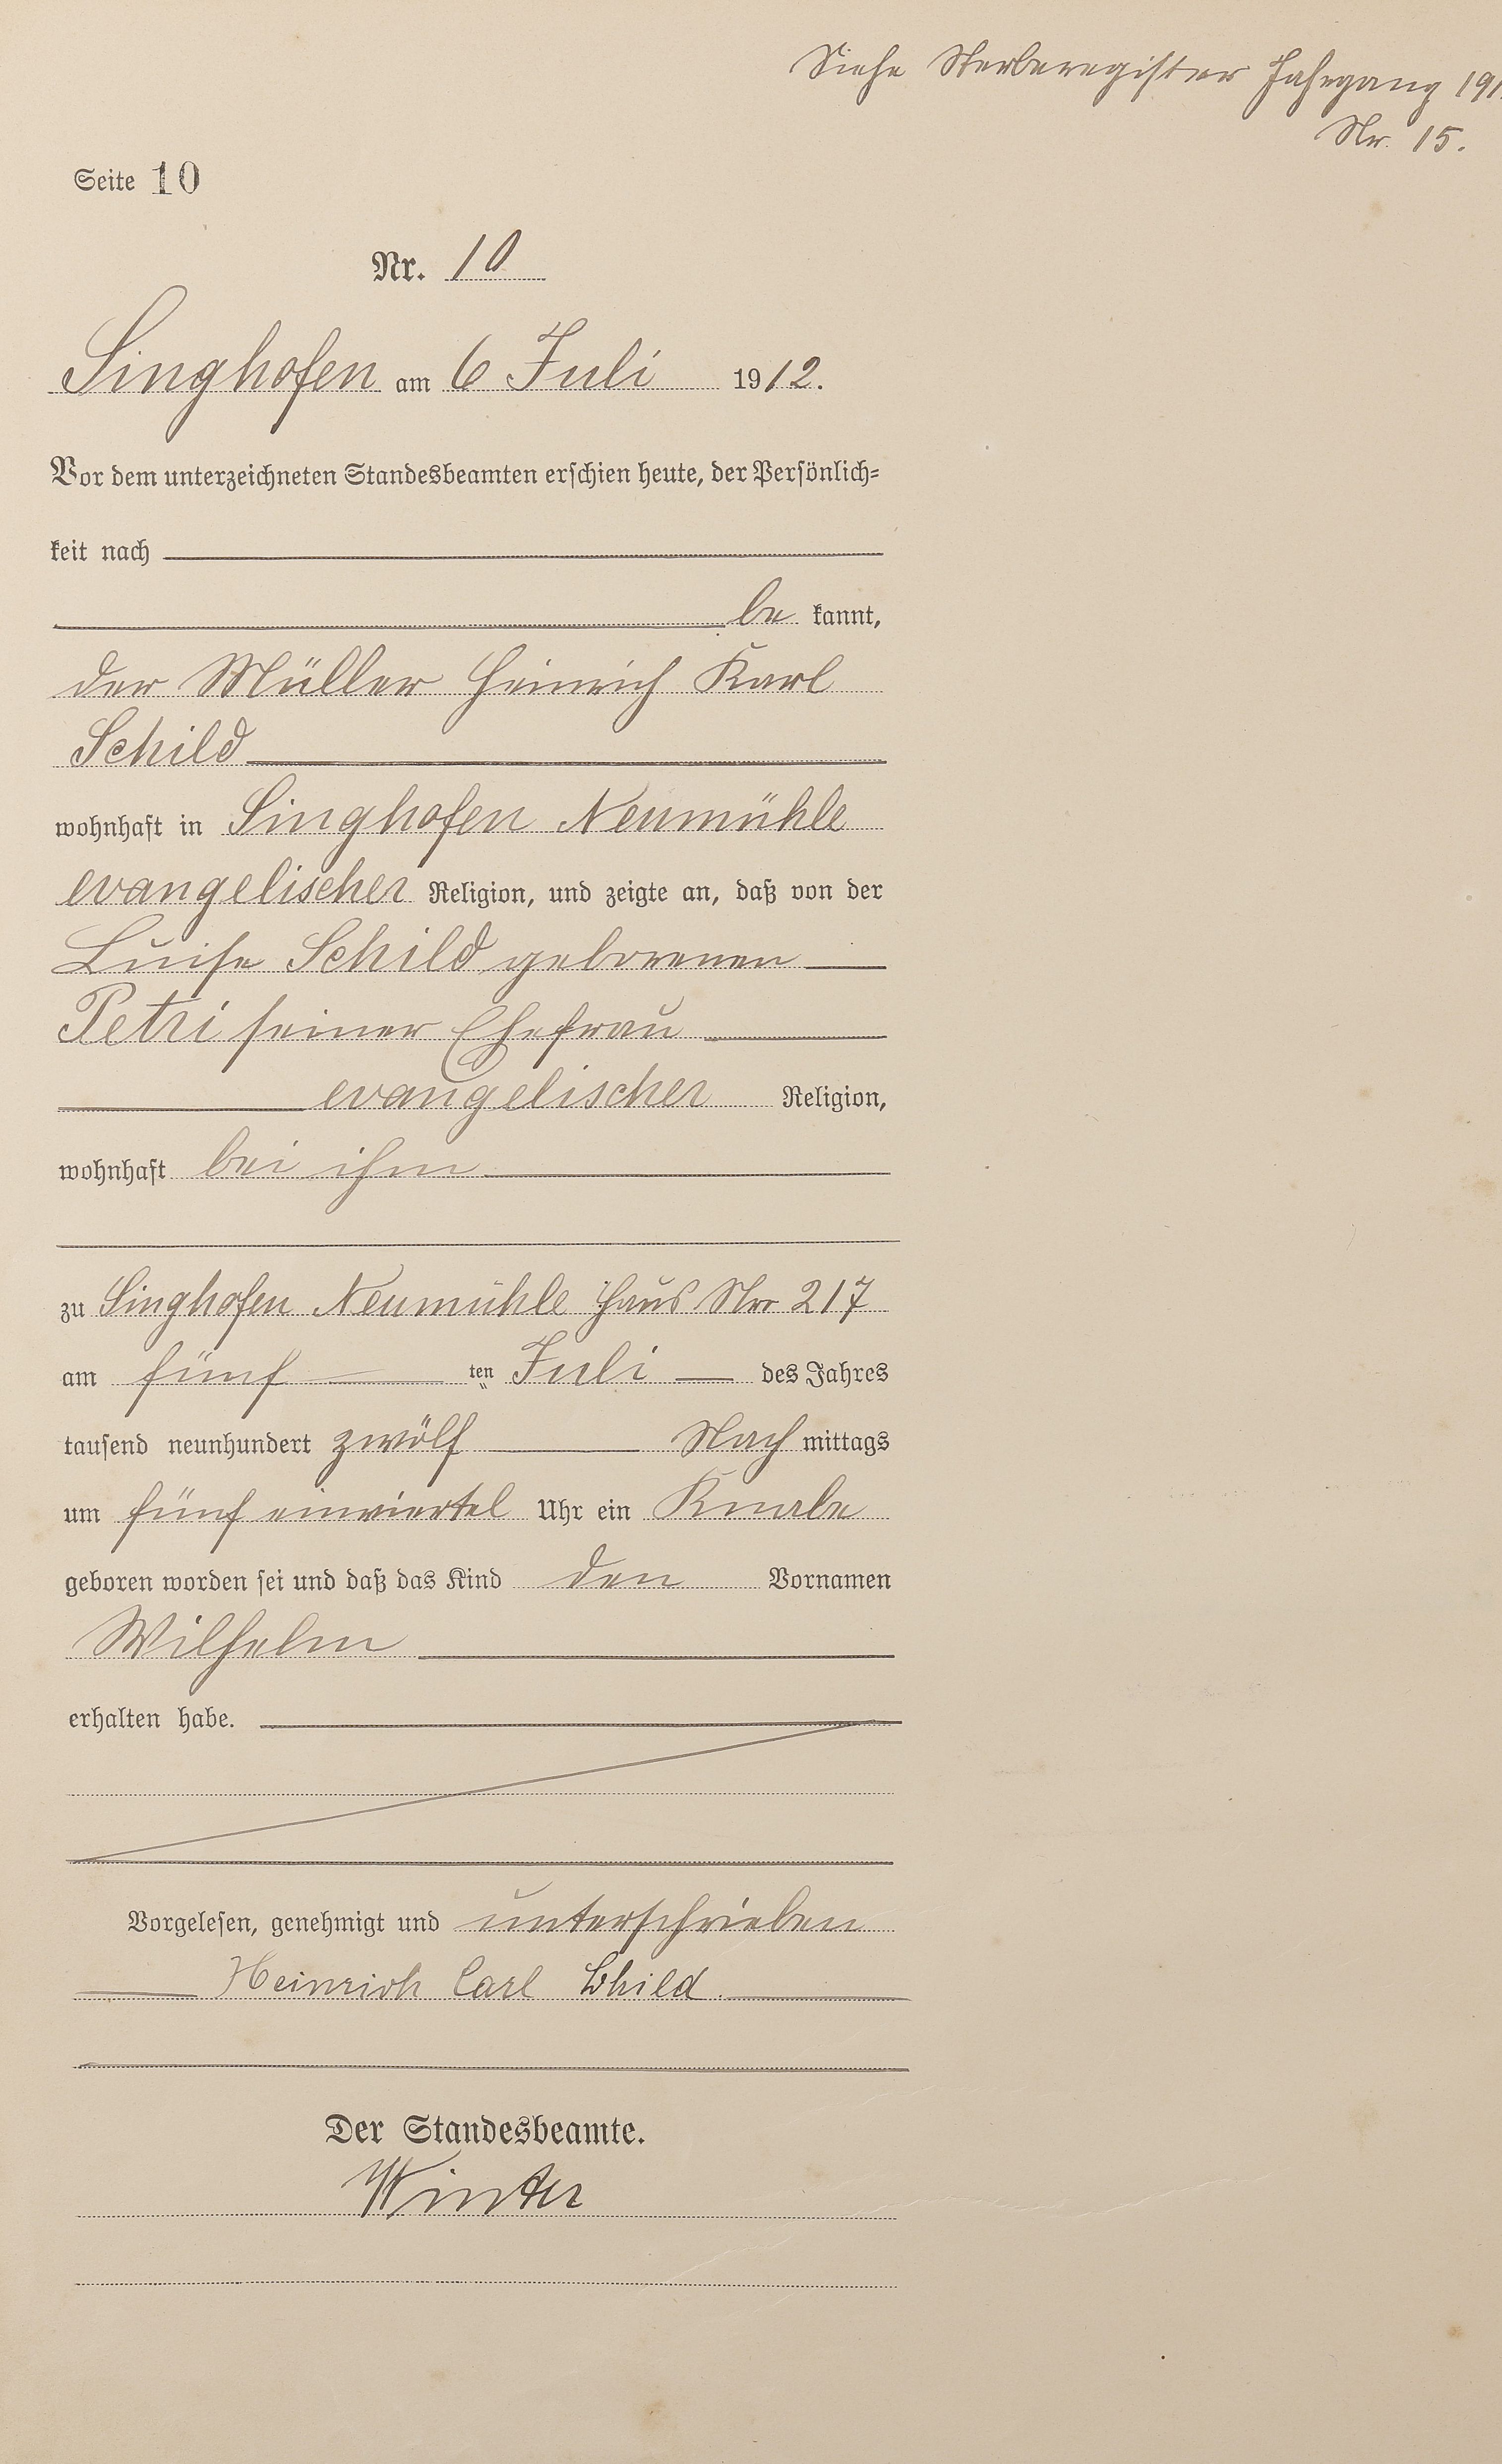 Siehe Sterberegister Jahrgang 191
Nr. 15.
Seite 10
Nr. 10
Singhofen am 6 Juli 1912.
Vor dem unterzeichneten Standesbeamten erschien heute, der Persönlich-
keit nach
be kannt,
der Müller Heinrich Karl
Schild
wohnhaft in Singhofen Neumühle
evangelischer Religion, und zeigte an, daß von der
Luise Schild geborenen
Petri seiner Ehefrau
evangelischer Religion,
wohnhaft bei ihm
zu Singhofen Neumühle Haus Nro 217
am fünf ten Juli des Jahres
tausend neunhundert zwölf Nach mittags
um fünf einviertel Uhr ein Knabe
geboren worden sei und daß das Kind den Vornamen
Wilhelm
erhalten habe.
Vorgelesen, genehmigt und unterschrieben
Heinrich Carl Schild.
Der Standesbeamte.
Winter